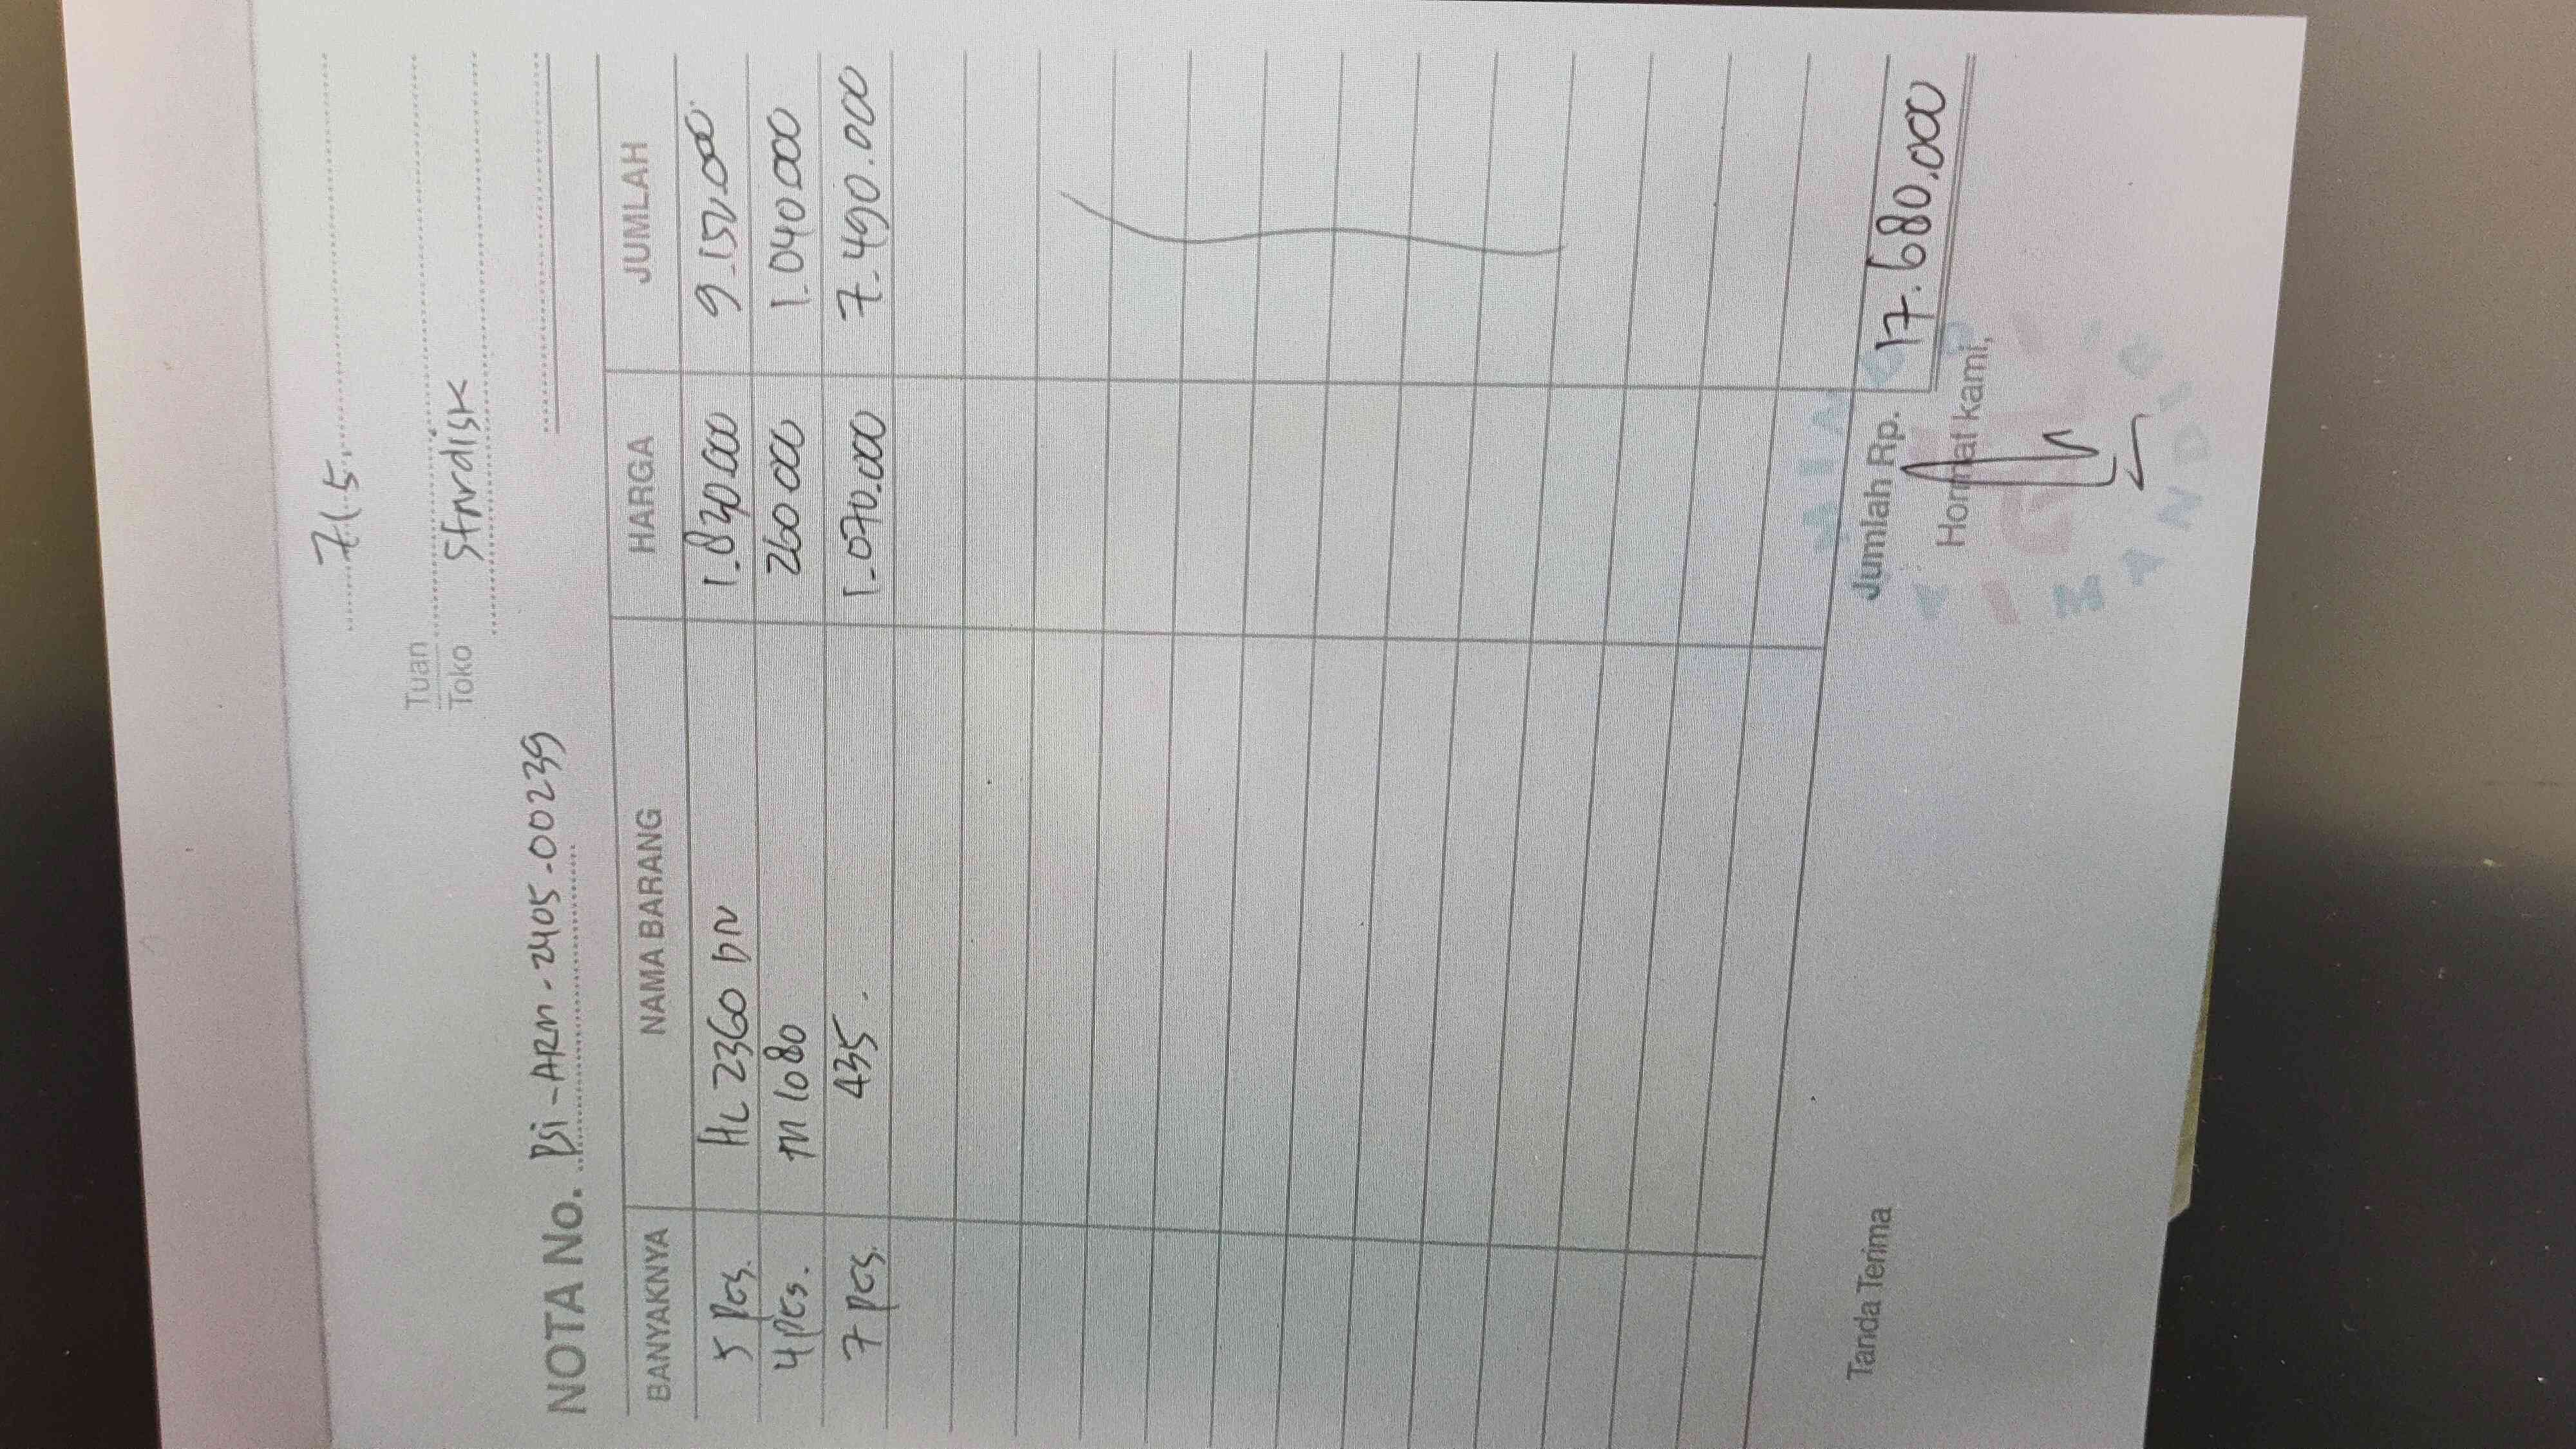 7/5
Tuan
Toko Stardisk
NOTA No. Psi-ARM-2405-00239
BANYAKNYA NAMA BARANG HARGA JUMLAH
5 pcs. HL 2360 DN 1.830.000 9.150.000
4 pcs. M 1080 260.000 1.040.000
7 pcs. 435. 1.070.000 7.490.000
Jumlah Rp. 17.680.000
Tanda Terima Hormat kami,